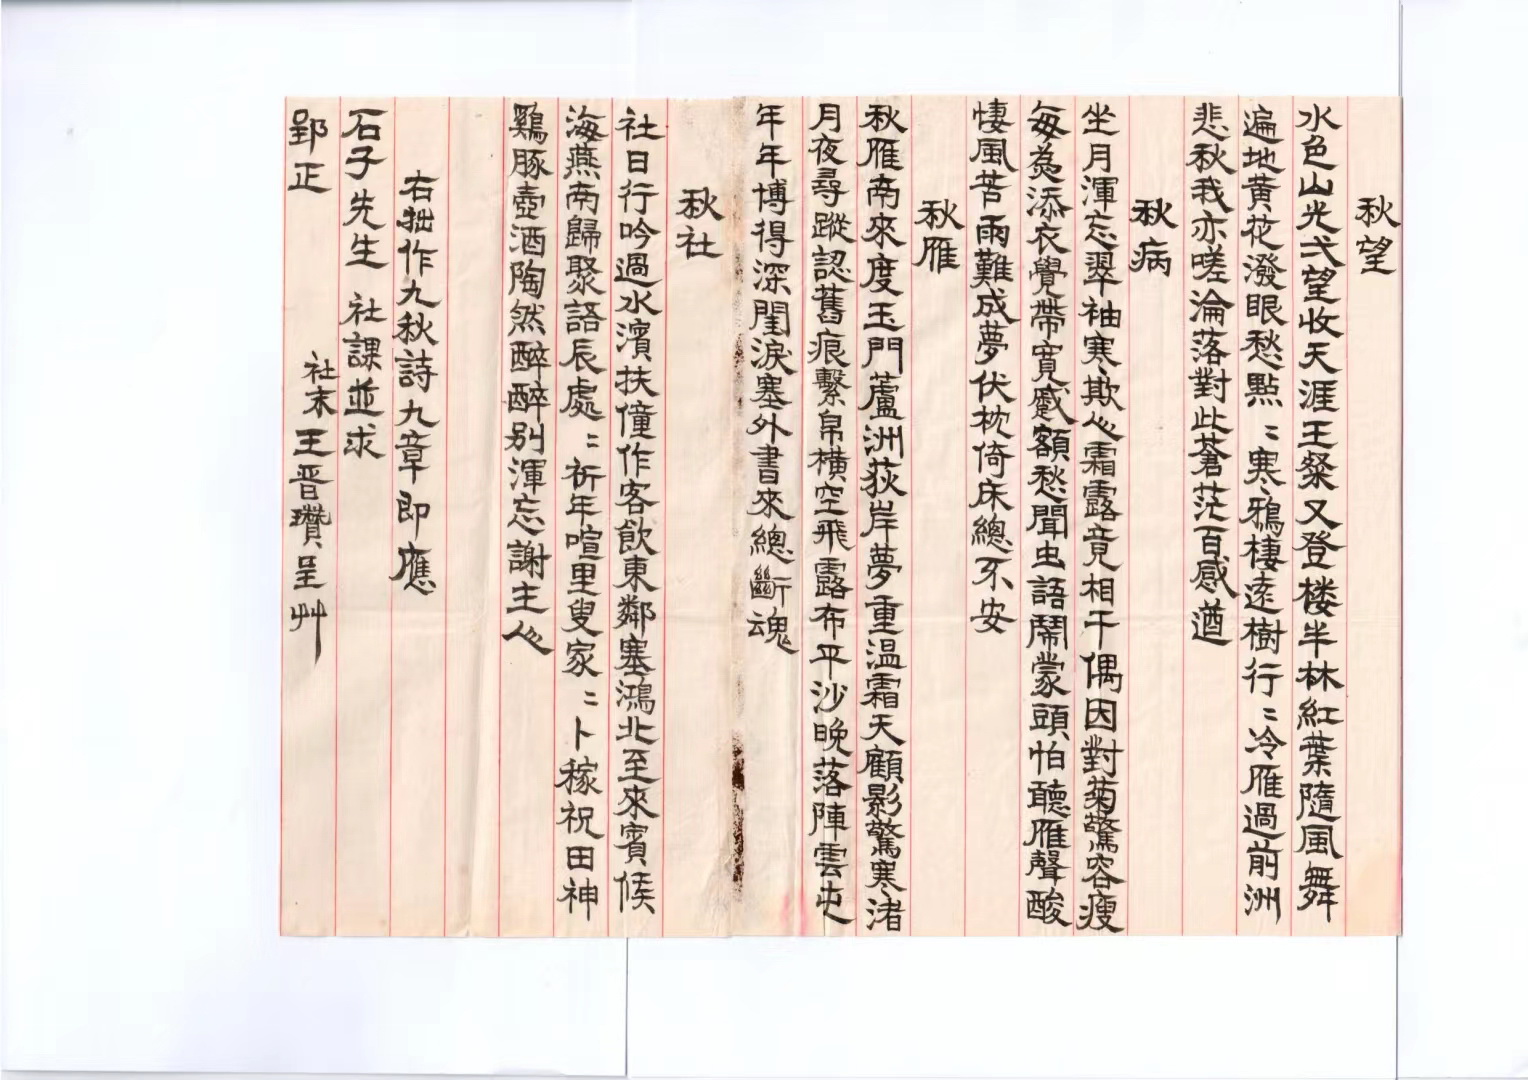 秋望
水色山光弌望收天涯王粲又登楼半林紅葉隨風舞
遍地黃花潑眼愁點〻寒鴉棲遠樹行〻冷雁過前洲
悲秋我亦嗟淪落對此蒼茫百感遒
秋病
坐月渾忘翠袖寒欺心霜露竟相干偶因對菊驚容瘦
每為添衣覺帶寬蹙額愁聞虫語鬧蒙頭怕聽雁聲酸
悽風苦雨難成夢伏枕倚床總不安
秋雁
秋雁南來度玉門蘆洲荻岸夢重温霜天顧影驚寒渚
月夜尋蹤認舊痕繫帛橫空飛露布平沙晚落陣雲屯
年年博得深閨淚塞外書來總斷魂
秋社
社日行吟過水濱扶僮作客飲東鄰塞鴻北至來賓候
海燕南歸聚語辰處〻祈年喧里叟家〻卜稼祝田神
鷄豚壺酒陶然醉醉别渾忘謝主人
右拙作九秋詩九章即應
石子先生 社課並求
郢正 社末王晋瓚呈艸